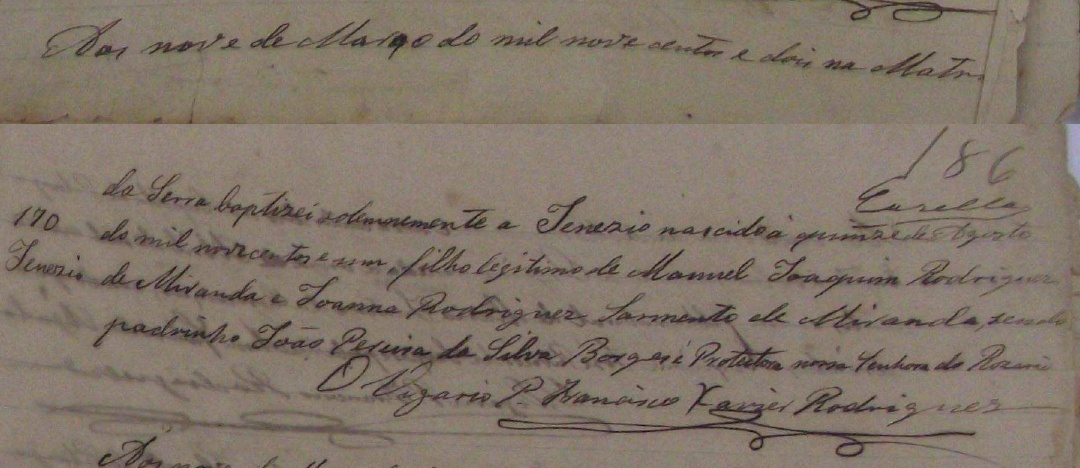 Aos nove de Março do mil nove centos e dois na Matriz
186
Casella
da Serra baptizei solemnemente a Jenezio nascido á quinze de Agosto
170
do mil nove centos e um, filho legitimo de Manuel Joaquim Rodrigues
Jenezio
de Miranda e Joanna Rodrigues Sarmento de Miranda, sendo
padrinho João Pereira da Silva Borges e Protectora nossa Senhora do Rozario
O Vigario P. Francisco Xavier Rodrigues